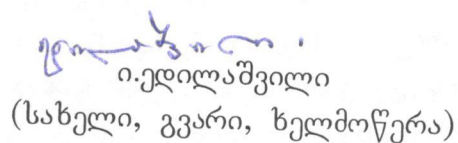 ი.ედილაშვილი
(სახელი, გვარი, ხელმოწერა)